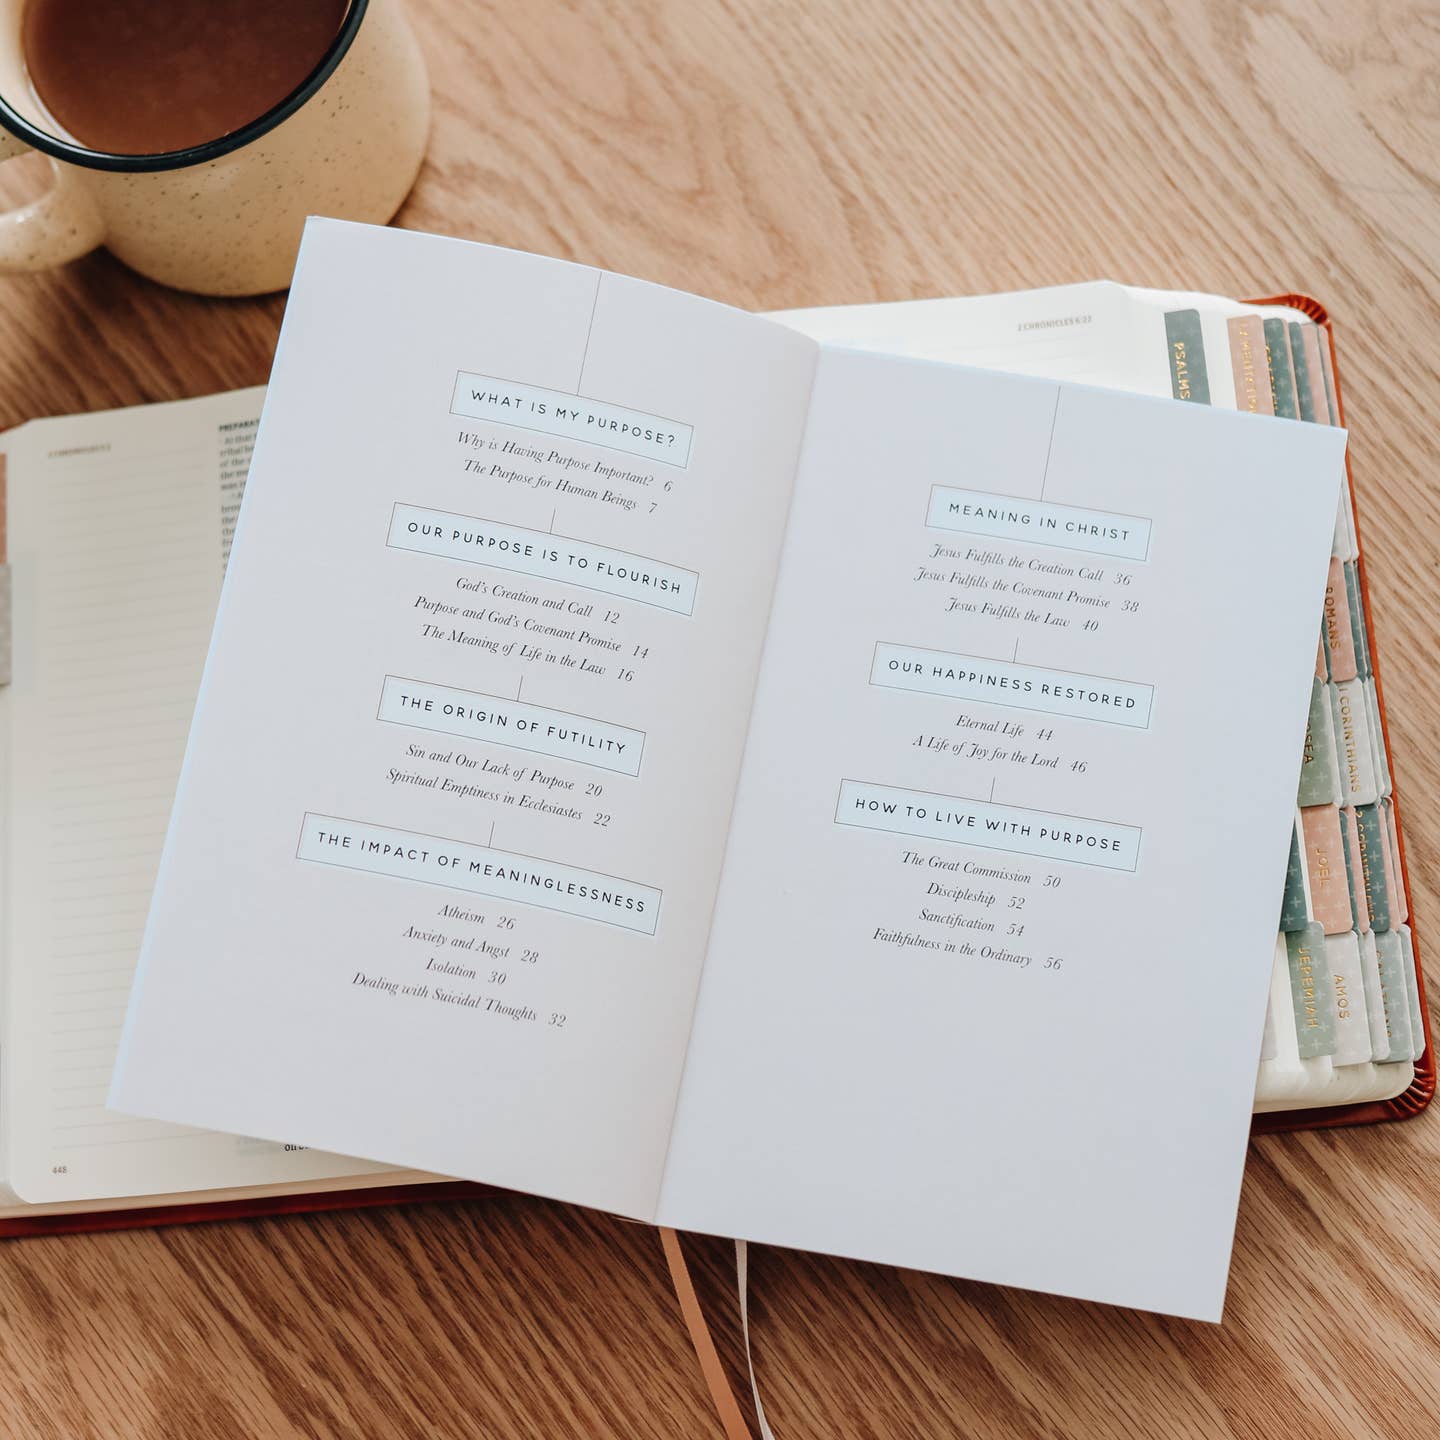 WHAT IS MY PURPOSE?
Why is Having Purpose Important? 6
The Purpose for Human Beings 7
OUR PURPOSE IS TO FLOURISH
God's Creation and Call 12
Purpose and God's Covenant Promise 14
The Meaning of Life in the Law 16
THE ORIGIN OF FUTILITY
Sin and Our Lack of Purpose 20
Spiritual Emptiness in Ecclesiastes 22
THE IMPACT OF MEANINGLESSNESS
Atheism 26
Anxiety and Angst 28
Isolation 30
Dealing with Suicidal Thoughts 32
MEANING IN CHRIST
Jesus Fulfills the Creation Call 36
Jesus Fulfills the Covenant Promise 38
Jesus Fulfills the Law 40
OUR HAPPINESS RESTORED
Eternal Life 44
A Life of Joy for the Lord 46
HOW TO LIVE WITH PURPOSE
The Great Commission 50
Discipleship 52
Sanctification 54
Faithfulness in the Ordinary 56
2 CHRONICLES 6:22
448
PSALMS
ROMANS
CORINTHIANS
JOEL
JEREMIAH
AMOS